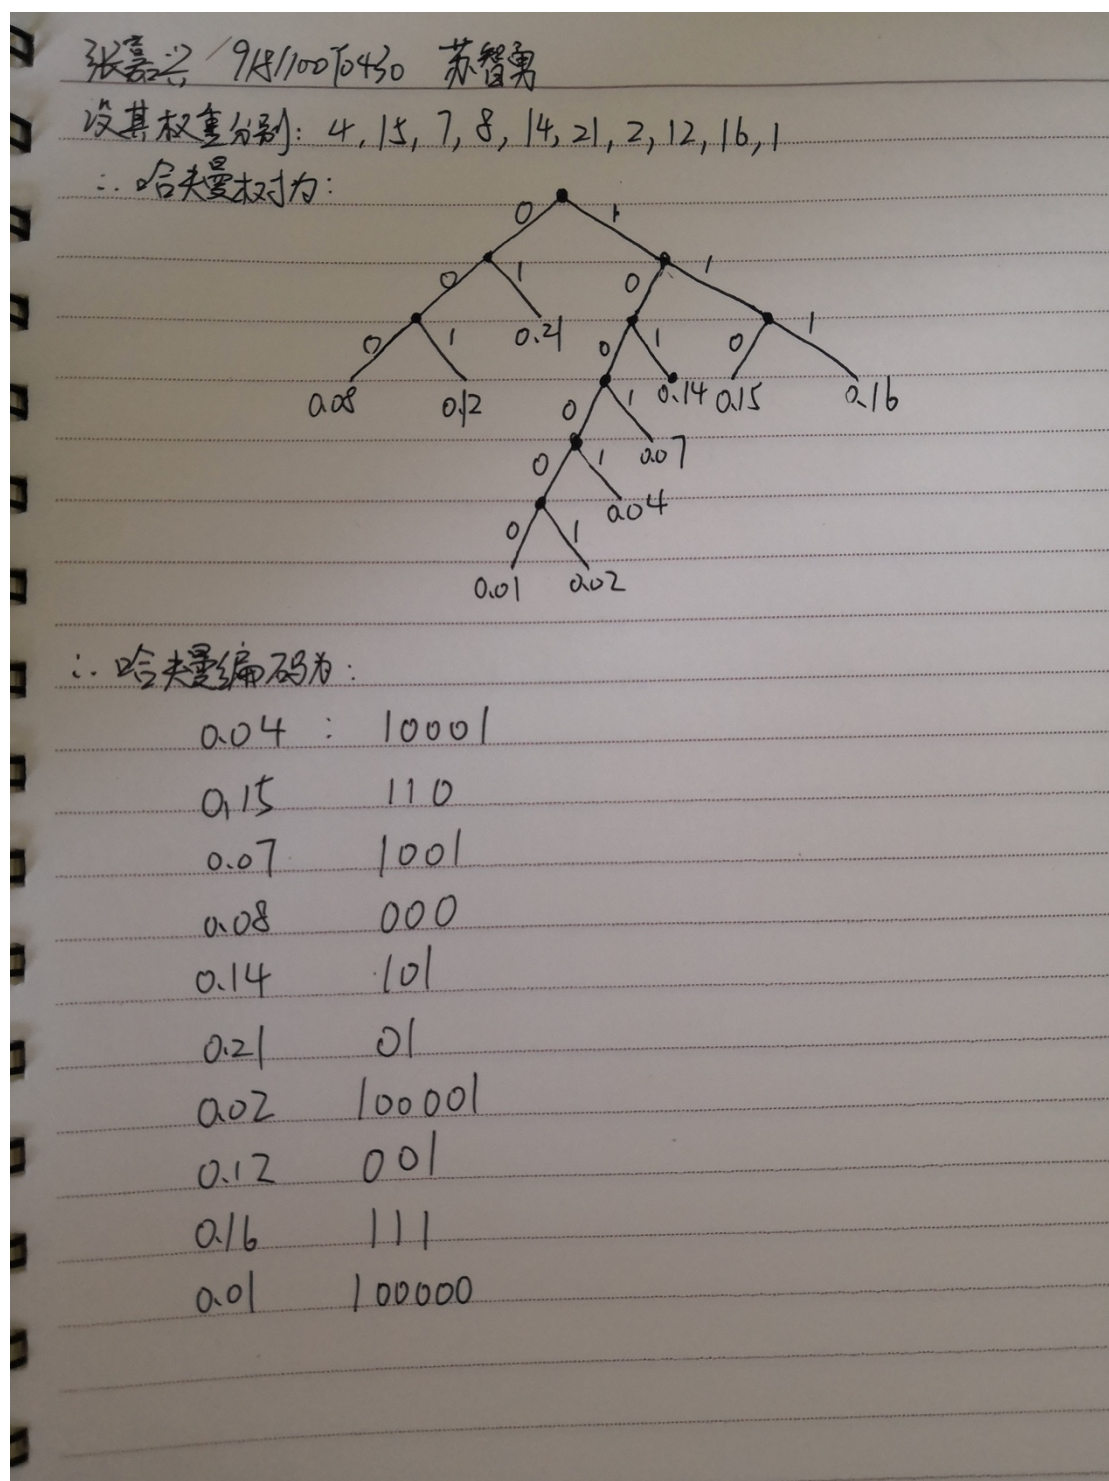 张嘉兴 苏智勇
设其权重分别: 4, 15, 7, 8, 14, 21, 2, 12, 16, 1
∴ 哈夫曼树为:
0 1
0 1 0 1
0 1 0.21 0 1 0 1
0.08 0.12 0 1 0.14 0.15 0.16
0 1 0.07
0 1 0.04
0.01 0.02
∴ 哈夫曼编码为:
0.04 : 10001
0.15 110
0.07 1001
0.08 000
0.14 101
0.21 01
0.02 100001
0.12 001
0.16 111
0.01 100000